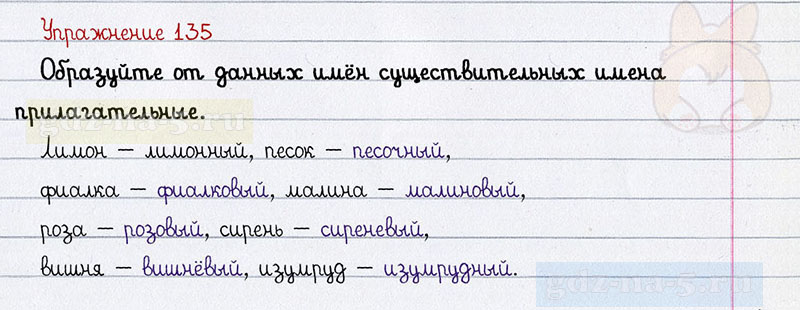 Упражнение 135
Образуйте от данных имён существительных имена
прилагательные.
gdz-na-5.ru
Лимон – лимонный, песок – песочный,
фиалка – фиалковый, малина – малиновый,
роза – розовый, сирень – сиреневый,
вишня – вишнёвый, изумруд – изумрудный.
gdz-na-5.ru